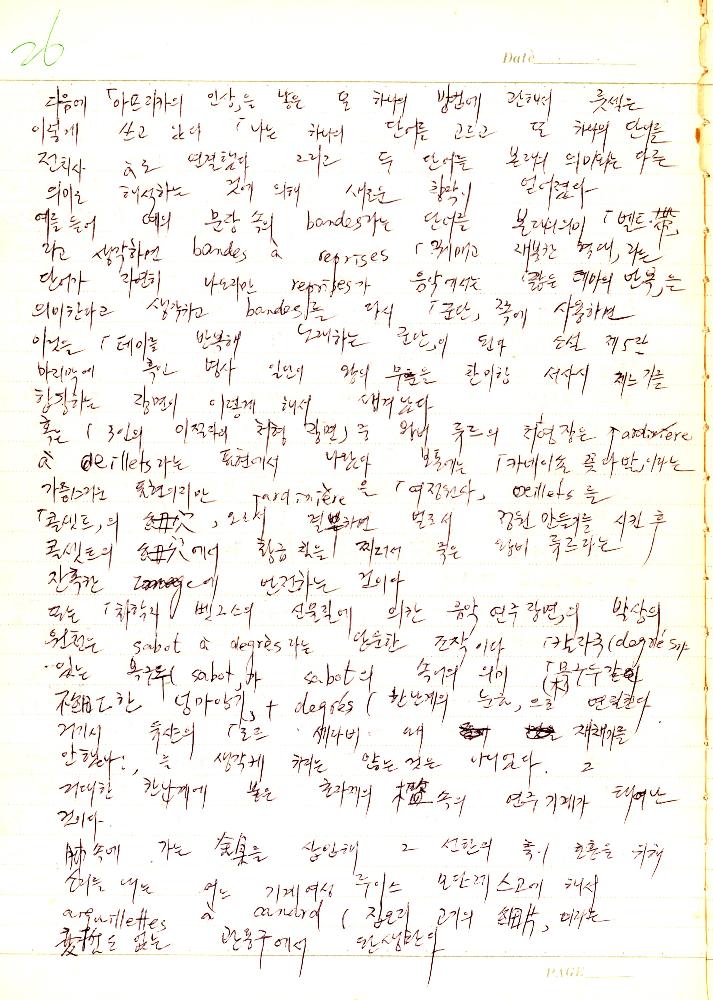 26
Date
다음에 「아프리카의 인상」을 낳은 또 하나의 방법에 관해서 룻셀은
이렇게 쓰고 있다 「나는 하나의 단어를 고르고 또 하나의 단어를
전치사 à로 연결했다 그리고 두 단어를 본래의 의미와는 다른
의미로 해석하는 것에 의해 새로운 착막이 얻어졌다
예를 들어 예의 문장 속의 bandes라는 단어를 본래의의미 「벨트·帶」
라고 생각하면 bandes à reprises 「꿰매고 새롭칸 혁대」라는
단어가 자연히 나오지만 reprises가 음악에서는 「짧은 테마의 반복」을
의미한다고 생각하고 bandes를 다시 「군단」쪽에 사용하면
이것은 「테마를 반복해 노래하는 군단」이 된다 소설 제5장
마지막에 흑인 병사 일단이 왕의 무훈을 찬미한 서사시 제느기를
합창하는 장면이 이렇게 해서 생겨났다
혹은 「3인의 처형 장면」중 왕비 류르의 처형장은 jardinière
à oeillets라는 표현에서 나왔다 보통에는 「카네이숀 꽃다발」이라는
표현의지만 jardinière을 「여정원사」, oeillets을
「콜셋트」의 紐穴, 으로서 결부하면 벌로서 정원 만들기를 시킨 후
콕셋트의 紐穴에서 황금 핀을 찌러서 죽은 왕비 류르라는
잔혹한 image에 반전하는 것이다
또는 「화학자 벡스의 신물질에 의한 음악 연주 장면」의 발상의
원천은 sabot à degrès라는 단순한 조작이다 「칸라죽(degrès)가
있는 목구두(sabot)가 sabot의 속어의 의미 「목구두같이
粗한 넝마악기」+ degrés (한난계의 눈금」으로 연결한다
거기서 뒤샹의 「로즈 세라비 왜 재채기를
안했나?」를 생각케 하는 않는 것은 아니었다. 그
거대한 한난계에 붙은 초자제의 檻속의 연주기계가 태어난
것이다.
肺속에 가는 金具를 삽입해 그 선단의 흑이 호흡을 위해
소리를 내는 어느 기계여성 루이스 모단레스코에 해서
arguillettes à canard (집오리 고기의 細片」이라는
変哲도 없는 관용구에서 탄생한다
PAGE